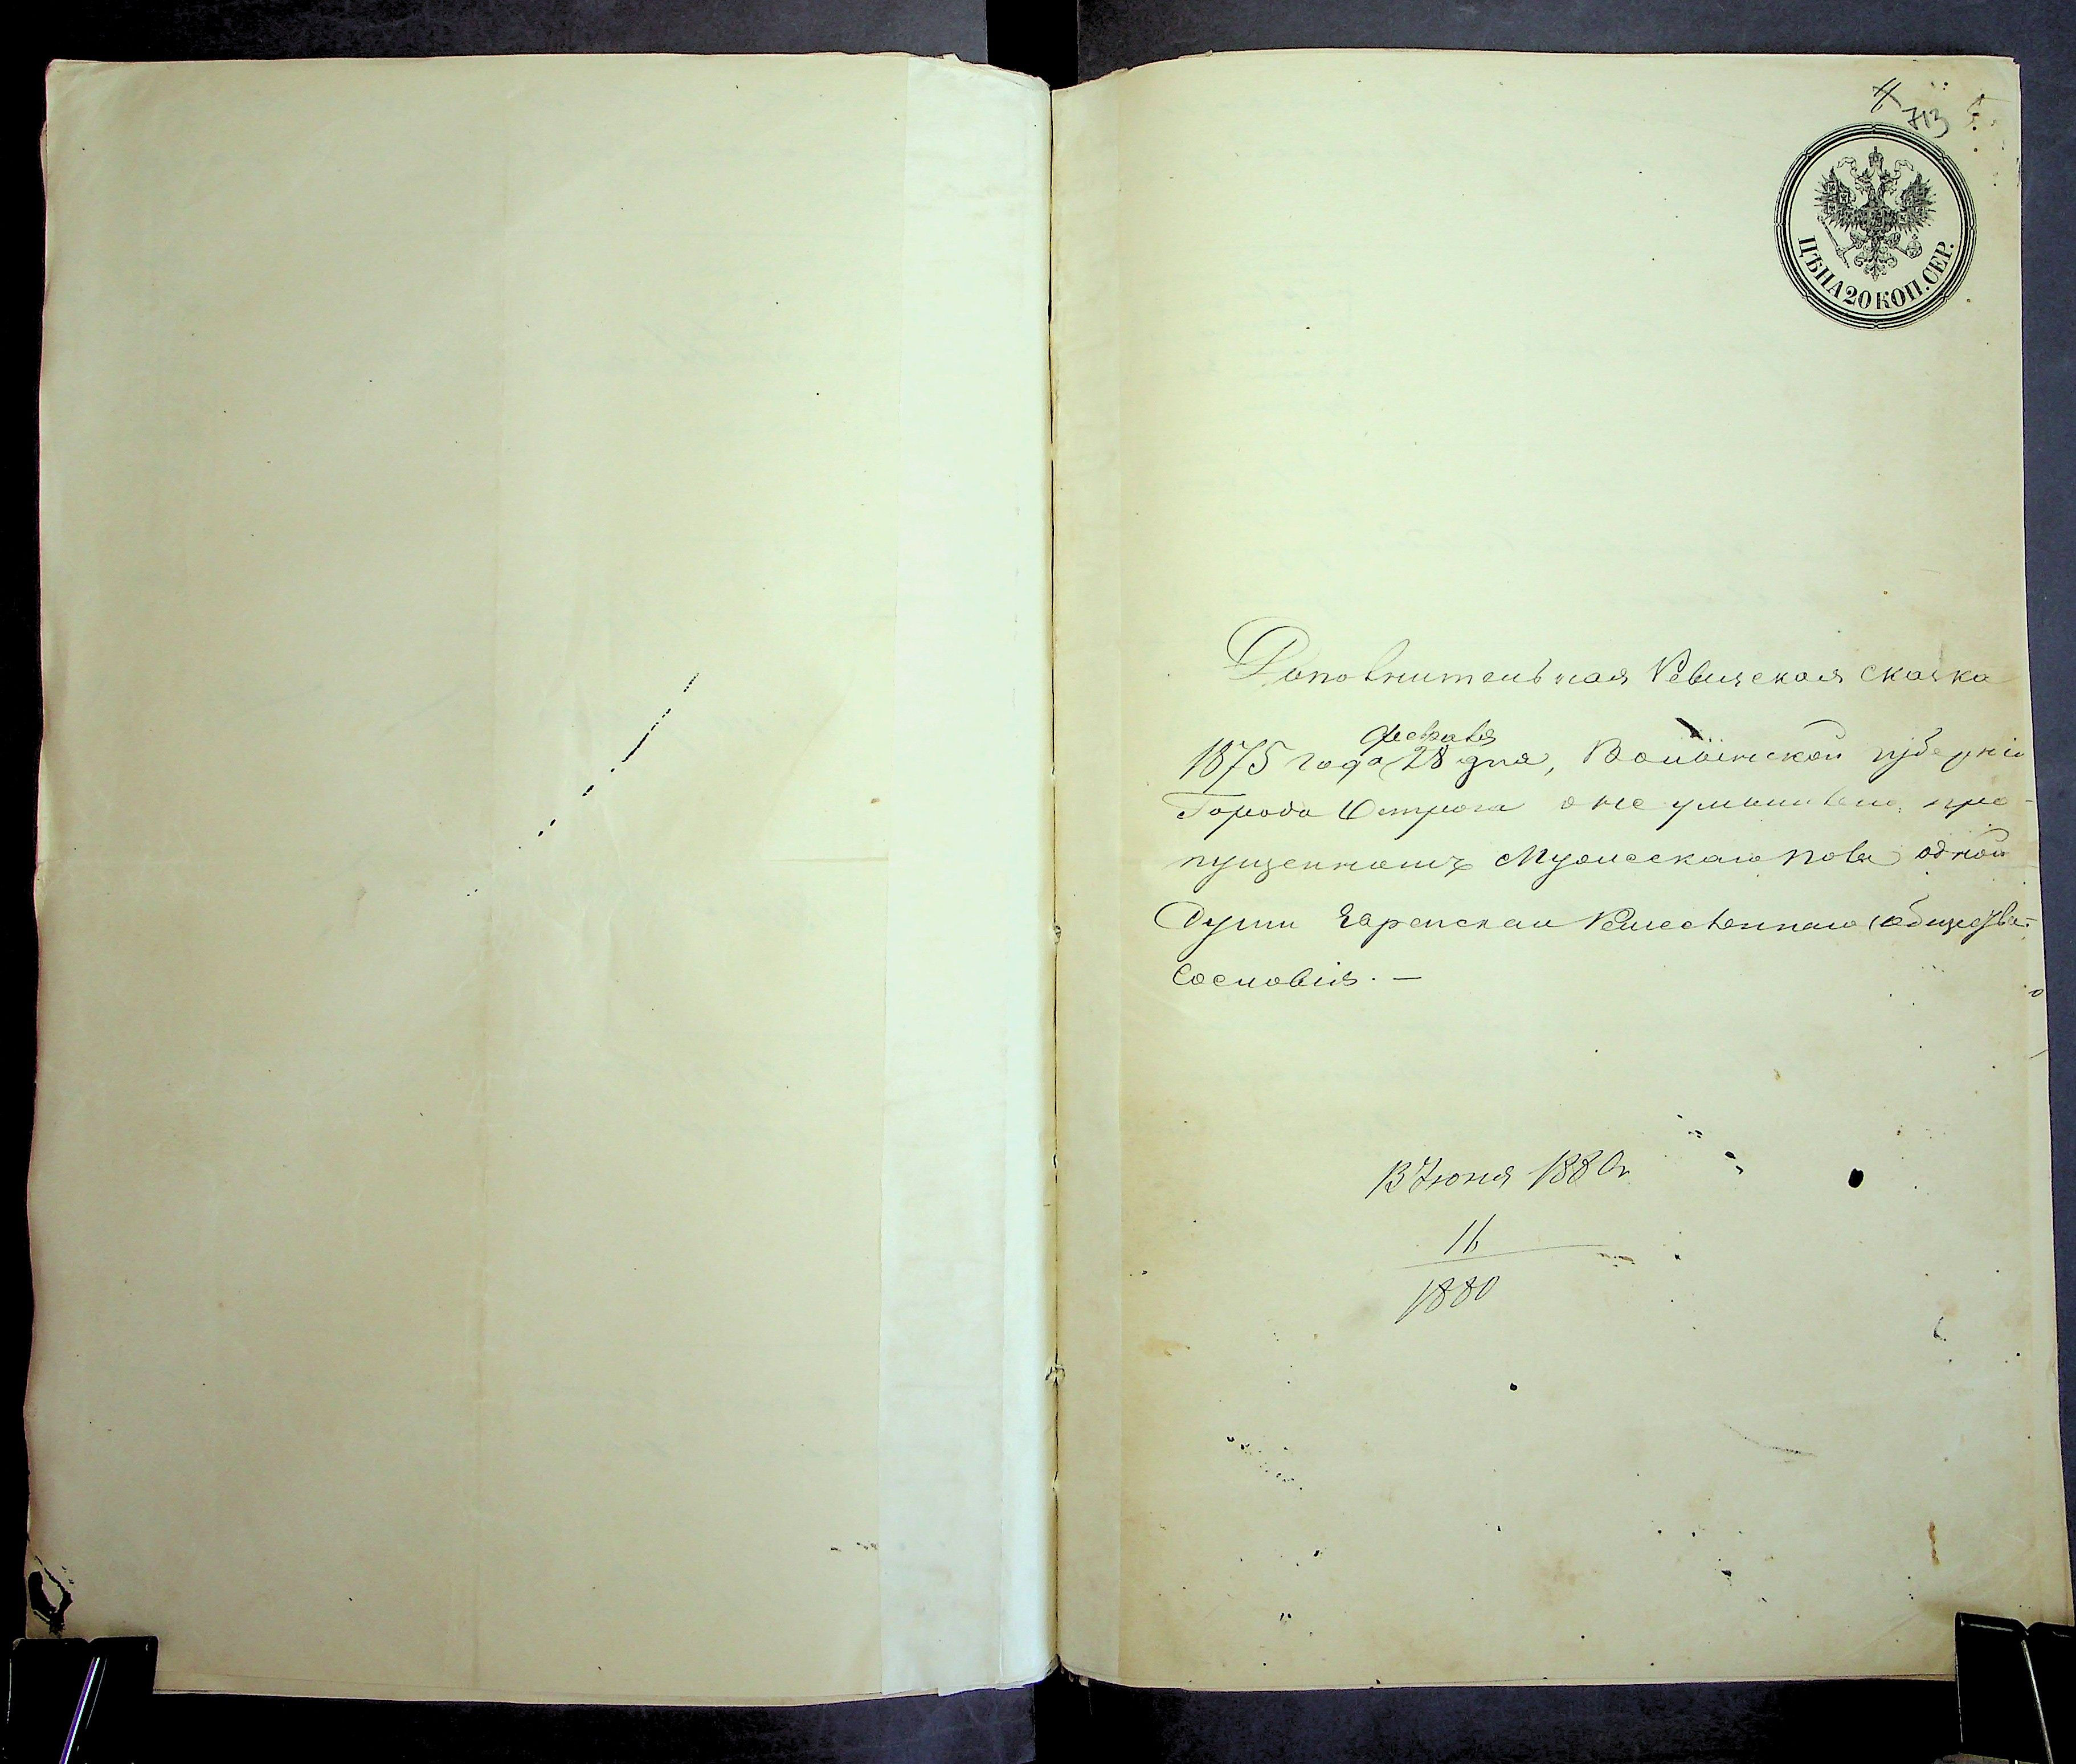 713
ЦѢНА 20 КОП. СЕР.
Дополнительная Ревизская сказка
февраля
1875 года 28 дня, Волынской губерніи
Города Острога о не умышлено про-
пущенномъ Мужескаго пола одной
Души Еврейскаи Ремесленнаго общества
Сословія. —
13 Іюня 1880 г.
11
1880